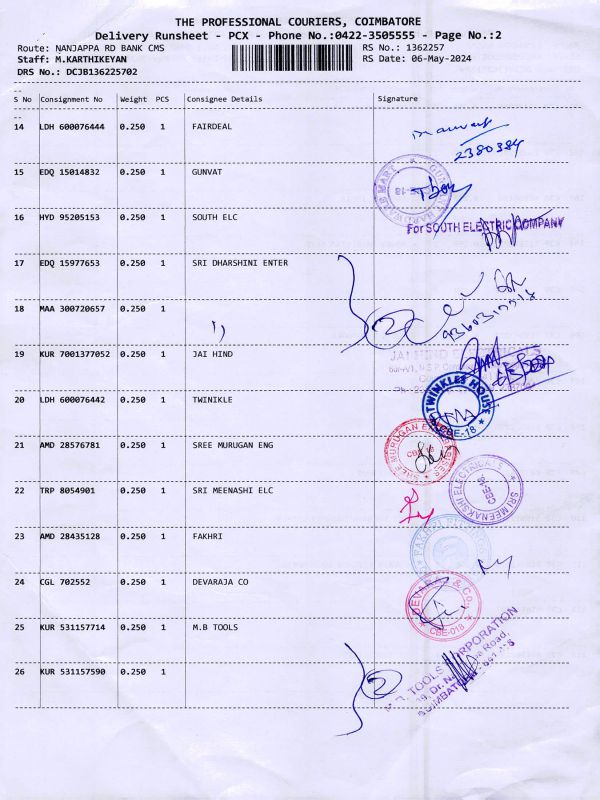 THE PROFESSIONAL COURIERS, COIMBATORE
Delivery Runsheet - PCX - Phone No.:0422-3505555 - Page No.:2
Route: NANJAPPA RD BANK CMS RS No.: 1362257
Staff: M.KARTHIKEYAN RS Date: 06-May-2024
DRS No.: DCJB136225702
S No Consignment No Weight PCS Consignee Details Signature
14 LDH 600076444 0.250 1 FAIRDEAL
2380384
15 EDQ 15014832 0.250 1 GUNVAT
16 HYD 95205153 0.250 1 SOUTH ELC
For SOUTH ELECTRIC COMPANY
17 EDQ 15977653 0.250 1 SRI DHARSHINI ENTER
18 MAA 300720657 0.250 1
2
19 KUR 7001377052 0.250 1 JAI HIND
JAI HIND
20 LDH 600076442 0.250 1 TWINIKLE
TWINKLES HOUSE
CBE-18
21 AMD 28576781 0.250 1 SREE MURUGAN ENG
SREE MURUGAN
22 TRP 8054901 0.250 1 SRI MEENASHI ELC
SRI MEENAKSHI ELECTRICALS
CBE-18
23 AMD 28435128 0.250 1 FAKHRI
FAKHRI
24 CGL 702552 0.250 1 DEVARAJA CO
DEVARAJ & Co.
CBE-018
25 KUR 531157714 0.250 1 M.B TOOLS
TOOLS CORPORATION
Road,
26 KUR 531157590 0.250 1
2